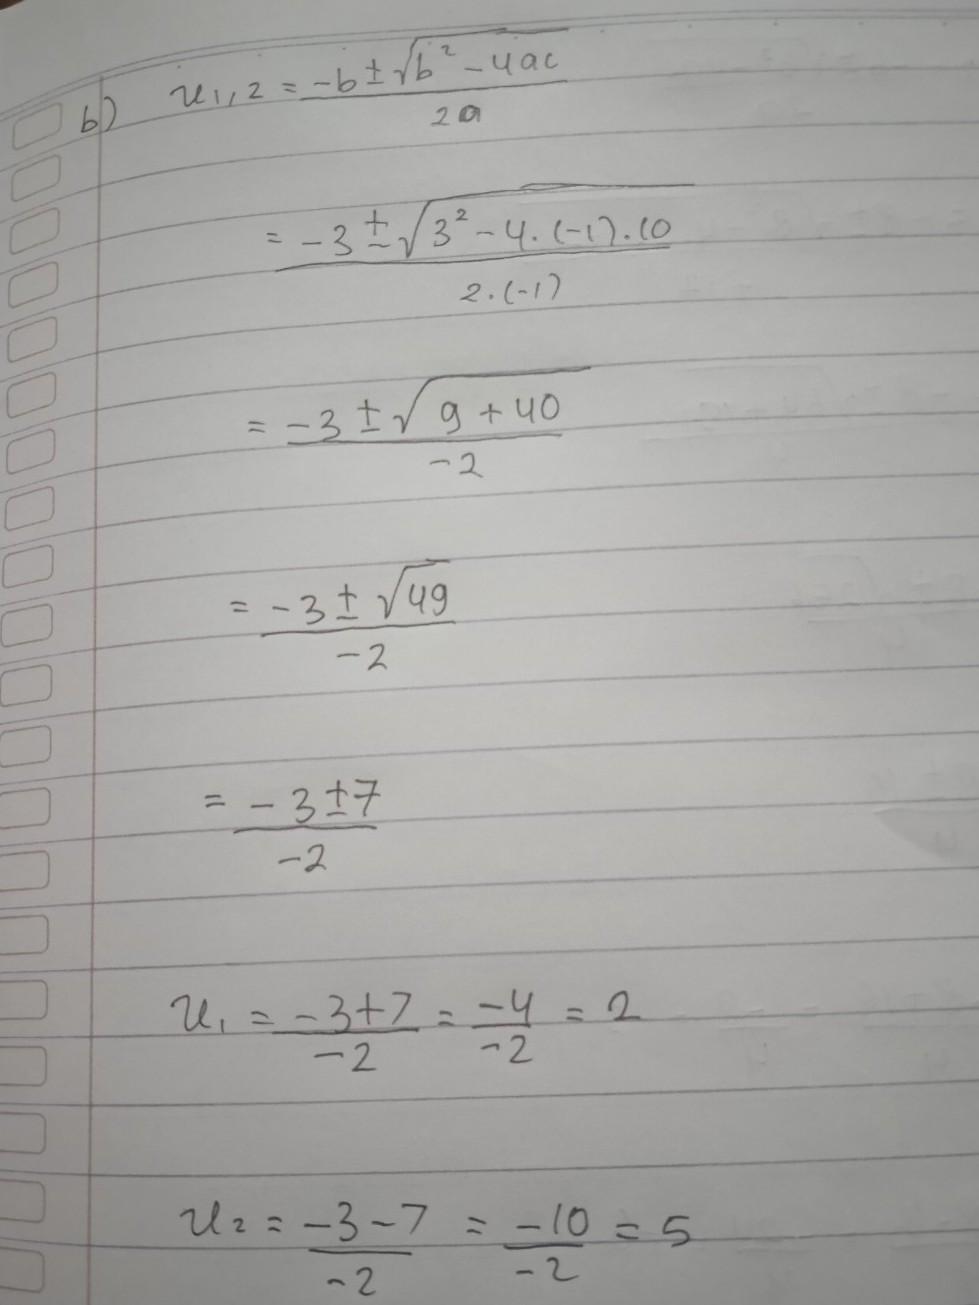 b) x₁,₂ = (-b ± √(b² - 4ac)) / 2a
= (-3 ± √(3² - 4.(-1).10)) / 2.(-1)
= (-3 ± √(9 + 40)) / -2
= (-3 ± √49) / -2
= (-3 ± 7) / -2
x₁ = (-3+7) / -2 = -4 / -2 = 2
x₂ = (-3-7) / -2 = -10 / -2 = 5